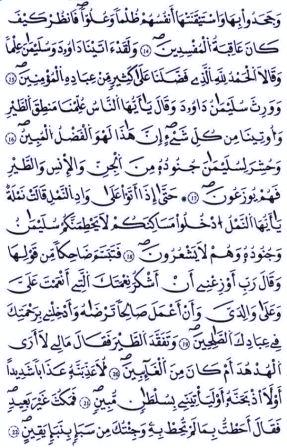 وَجَحَدُوا۟ بِهَا وَٱسْتَيْقَنَتْهَآ أَنفُسُهُمْ ظُلْمًا وَعُلُوًّا ۚ فَٱنظُرْ كَيْفَ
كَانَ عَٰقِبَةُ ٱلْمُفْسِدِينَ ١٤ وَلَقَدْ ءَاتَيْنَا دَاوُۥدَ وَسُلَيْمَٰنَ عِلْمًا
وَقَالَا ٱلْحَمْدُ لِلَّهِ ٱلَّذِى فَضَّلَنَا عَلَىٰ كَثِيرٍ مِّنْ عِبَادِهِ ٱلْمُؤْمِنِينَ ١٥
وَوَرِثَ سُلَيْمَٰنُ دَاوُۥدَ وَقَالَ يَٰٓأَيُّهَا ٱلنَّاسُ عُلِّمْنَا مَنطِقَ ٱلطَّيْرِ
وَأُوتِينَا مِن كُلِّ شَىْءٍ إِنَّ هَٰذَا لَهُوَ ٱلْفَضْلُ ٱلْمُبِينُ ١٦
وَحُشِرَ لِسُلَيْمَٰنَ جُنُودُهُۥ مِنَ ٱلْجِنِّ وَٱلْإِنسِ وَٱلطَّيْرِ
فَهُمْ يُوزَعُونَ ١٧ حَتَّىٰٓ إِذَآ أَتَوْا۟ عَلَىٰ وَادِ ٱلنَّمْلِ قَالَتْ نَمْلَةٌ
يَٰٓأَيُّهَا ٱلنَّمْلُ ٱدْخُلُوا۟ مَسَٰكِنَكُمْ لَا يَحْطِمَنَّكُمْ سُلَيْمَٰنُ
وَجُنُودُهُۥ وَهُمْ لَا يَشْعُرُونَ ١٨ فَتَبَسَّمَ ضَاحِكًا مِّن قَوْلِهَا
وَقَالَ رَبِّ أَوْزِعْنِىٓ أَنْ أَشْكُرَ نِعْمَتَكَ ٱلَّتِىٓ أَنْعَمْتَ عَلَىَّ
وَعَلَىٰ وَٰلِدَىَّ وَأَنْ أَعْمَلَ صَٰلِحًا تَرْضَىٰهُ وَأَدْخِلْنِى بِرَحْمَتِكَ
فِى عِبَادِكَ ٱلصَّٰلِحِينَ ١٩ وَتَفَقَّدَ ٱلطَّيْرَ فَقَالَ مَا لِىَ لَآ أَرَى
ٱلْهُدْهُدَ أَمْ كَانَ مِنَ ٱلْغَآئِبِينَ ٢٠ لَأُعَذِّبَنَّهُۥ عَذَابًا شَدِيدًا
أَوْ لَأَا۟ذْبَحَنَّهُۥٓ أَوْ لَيَأْتِيَنِّى بِسُلْطَٰنٍ مُّبِينٍ ٢١ فَمَكَثَ غَيْرَ بَعِيدٍ
فَقَالَ أَحَطتُ بِمَا لَمْ تُحِطْ بِهِۦ وَجِئْتُكَ مِن سَبَإٍۭ بِنَبَإٍ يَقِينٍ ٢٢